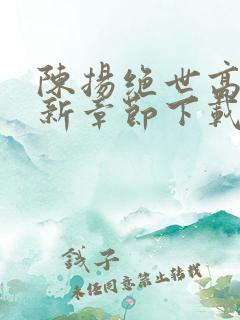 陳揚絕世高
新章節下載
錢子
未經同意禁止轉載